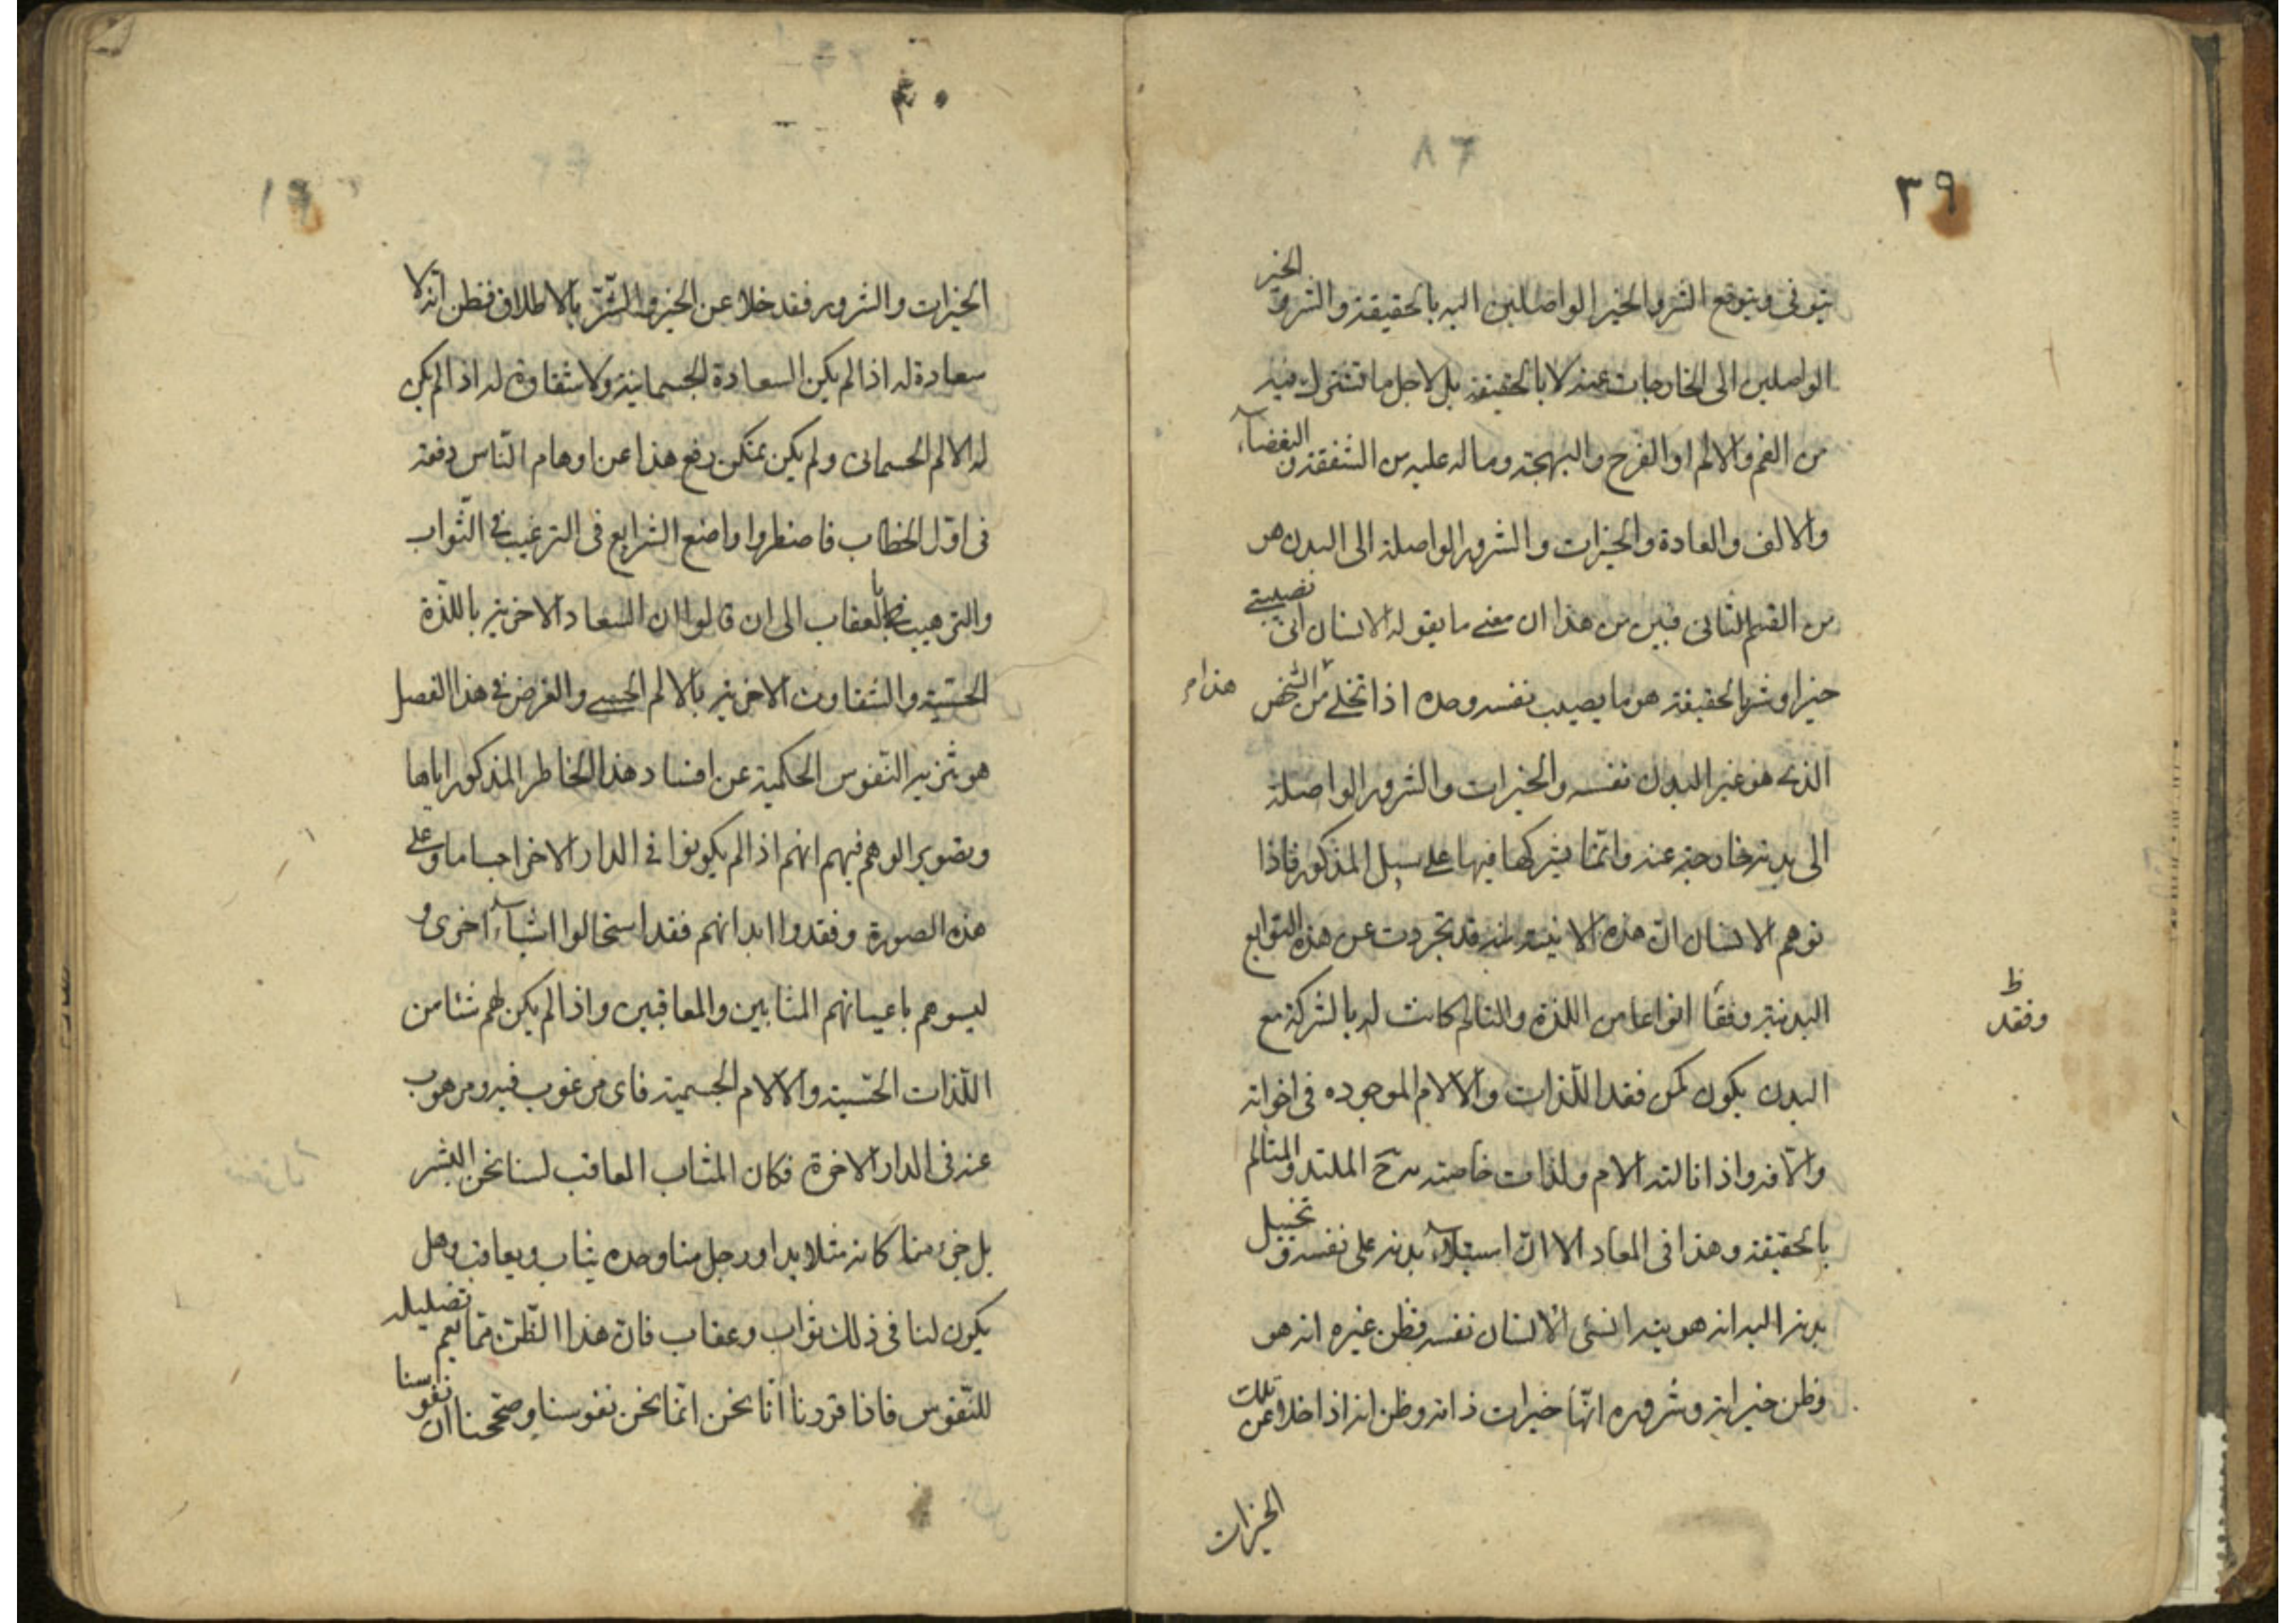 ٣٩
يتوقى ويتوقع الشر والخير الواصلين اليه بالحقيقة والشر والخير
الواصلين الى الخارجات عنه لا بالحقيقة بل لاجل ما تشترك فيه
من الغم والالم او الفرح والبهجة وما له عليه من الشفقة والبغضاء
والالف والعادة والخيرات والشرور الواصلة الى البدن هى
من القسم الثانى فبين من هذا ان معنى ما يقوله الانسان انى تصيبنى
خيرا وشر بالحقيقة هو ما يصيب نفسه وحده اذا تخلى من الشخص
هذا م
الذى هو غير البدن نفسه والخيرات والشرور الواصلة
الى بدنه خارجة عنه وانما يشركها فيها على سبل المذكور فاذا
توهم الانسان ان هذه الانية منه قد تجردت عن هذه التوابع
البدنية وفقا انواعا من اللذة والتالم كانت له بالشركة مع
وفقد ظ
البدن يكون كمن فقد اللذات والالام الموجوده فى اخوانه
والافه واذا نالته الام ولذات خاصته تحـ الملتذ والمتالم
بالحقيقة وهذا فى المعاد الا ان استيلاء بدنه على نفسه وتخييل
بدنه اليه انه هو ينه انسى الانسان نفسه فظن غيره انه هو
وظن خيراته وشروره انها خيرات ذاته وظن انه اذا خلا عن تلك
الخيرات
٤٠
الخيرات والشرور فقد خلا عن الخير والشر بالاطلاق فظن انه لا
سعادة له اذا لم يكن السعادة الجسمانية ولا شقاوة له اذا لم يكن
له الالم الجسمانى ولم يكن يمكن رفع هذا عن اوهام الناس دفعة
فى اول الخطاب فاضطروا واضع الشرايع فى الترغيب فى الثواب
والترهيب بالعقاب الى ان قالوا ان السعاد الاخرية باللذة
الحسّية والشقاوت الاخرية بالالم الحسى والغرض فى هذا الفصل
هو تنزيه النفوس الحكمية عن افساد هذا الخاطر المذكور اياها
وتصوير الوهم فيهم انهم اذا لم يكونوا فى الدار الاخرا جساما وعلى
هذه الصورة وفقدوا ابدانهم فقد استحالوا اشياء اخرى و
ليسو هم باعيانهم المثابين والمعاقبين واذا لم يكن لهم شئا من
اللذات الحسّية والالام الجسمية فاى مرغوب فيه ومرهوب
عنه فى الدار الاخرة فكان المثاب المعاقب لسنا نحن البشر
بل جزء منا كانه مثلا يد او رجل منا وحده يثاب ويعاقب وهل
يكون لنا فى ذلك ثواب وعقاب فان هذا الظن مما يعم تضليله
للنفوس فاذا قررنا انا نحن انما نحن نفوسنا وصححنا ان نفوسنا